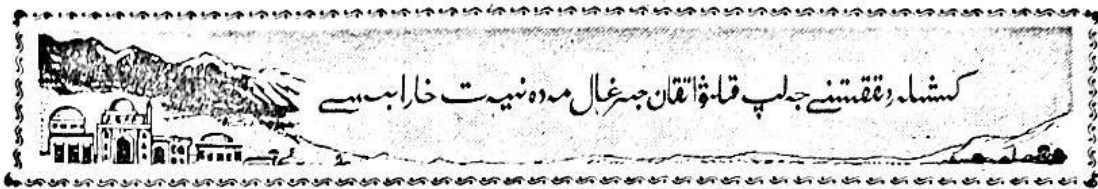 كىشىلەر دىققىتىنى جەلپ قىلىۋاتقان جىرغال مەدەنىيەت خارابىسى